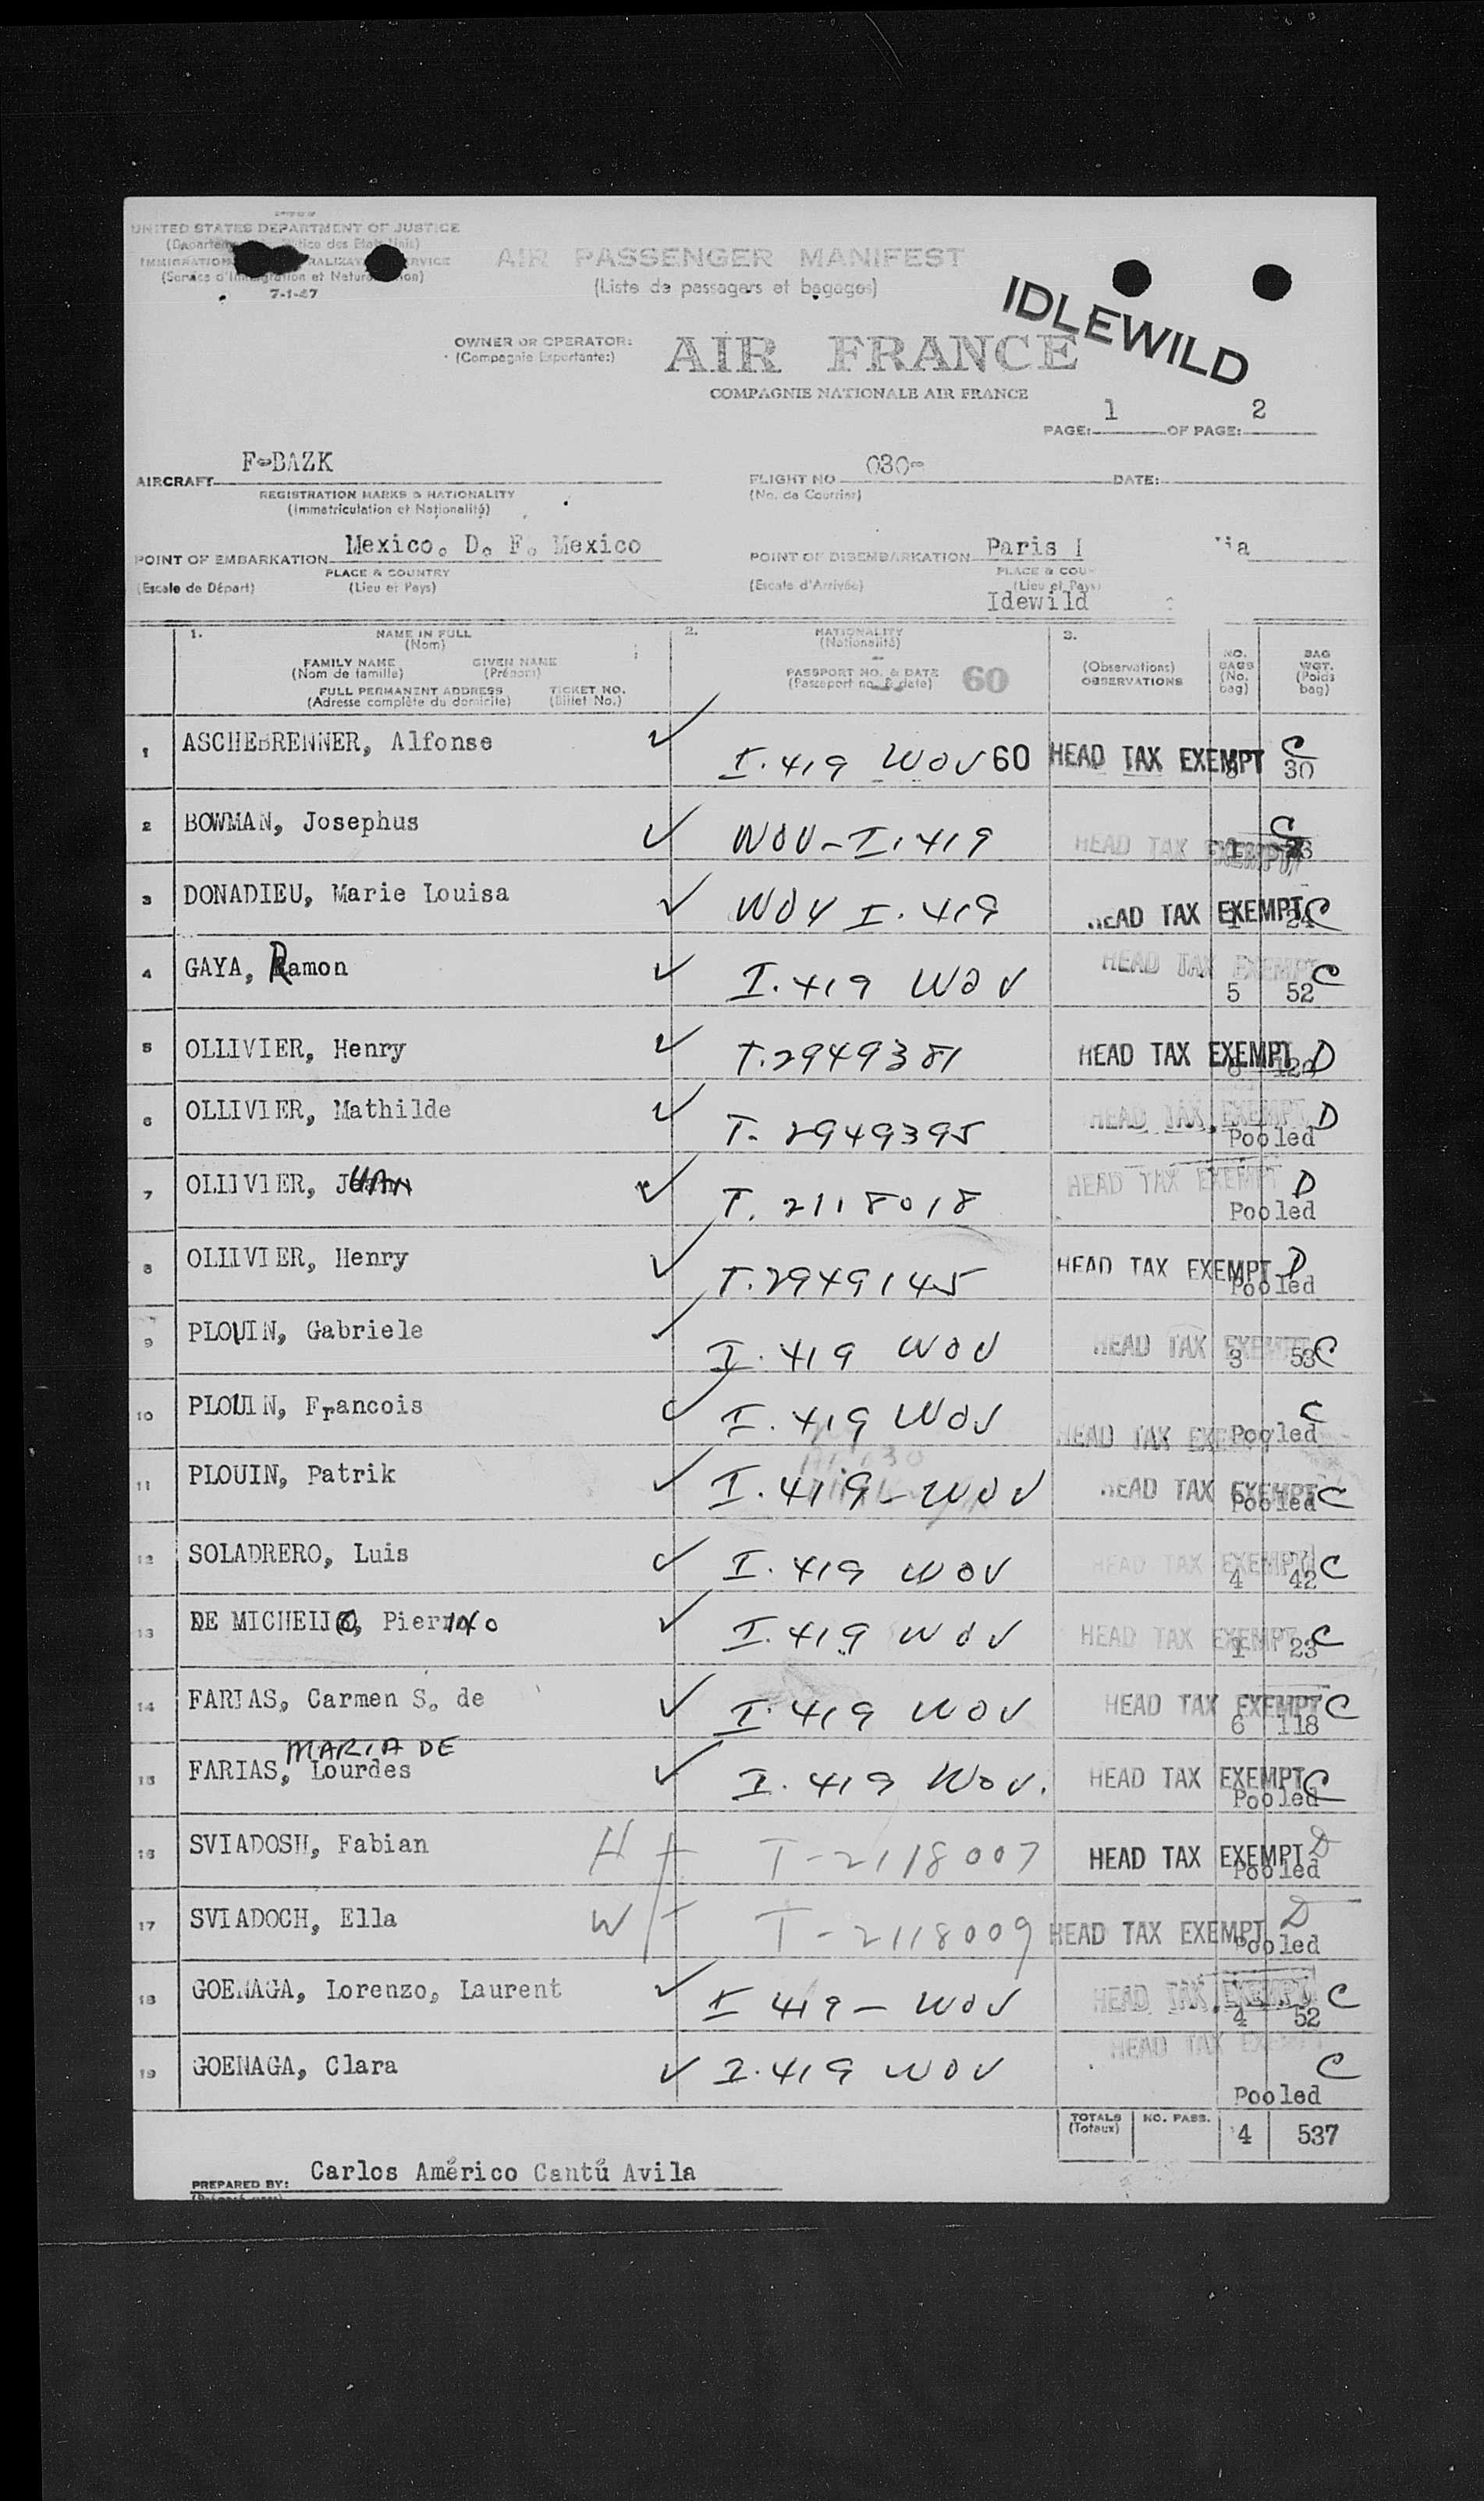 UNITED STATES DEPARTMENT OF JUSTICE
7-1-47
AIR PASSENGER MANIFEST
(Liste de passagers et bagages)
IDLEWILD
OWNER OR OPERATOR:
AIR FRANCE
COMPAGNIE NATIONALE AIR FRANCE
PAGE: 1 OF PAGE: 2
AIRCRAFT F-BAZK
REGISTRATION MARKS & NATIONALITY
(Immatriculation et Nationalité)
FLIGHT NO 030-
(No. de Courrier)
DATE:
POINT OF EMBARKATION Mexico. D. F. Mexico
PLACE & COUNTRY
(Escale de Départ) (Lieu et Pays)
POINT OF DISEMBARKATION Paris
PLACE & COU
(Escale d'Arrivée) (Lieu et Pays)
Idewild
1. NAME IN FULL
(Nom)
FAMILY NAME GIVEN NAME
(Nom de famille) (Prénom)
FULL PERMANENT ADDRESS TICKET NO.
(Adresse complète du domicile) (Billet No.)
2. NATIONALITY
(Nationalité)
PASSPORT NO. & DATE
(Passeport no. & date) 60
3.
(Observations)
OBSERVATIONS
NO.
BAGS
(No.
bag)
BAG
WGT.
(Poids
bag)
1 ASCHEBRENNER, Alfonse I.419 WOV 60 HEAD TAX EXEMPT C 30
2 BOWMAN, Josephus WOV-I.419 HEAD TAX EXEMPT C
3 DONADIEU, Marie Louisa WOV I.419 HEAD TAX EXEMPT 1 24 C
4 GAYA, Ramon I.419 WOV HEAD TAX EXEMPT 5 52 C
5 OLLIVIER, Henry T.2949381 HEAD TAX EXEMPT D
6 OLLIVIER, Mathilde T-2949395 HEAD TAX EXEMPT Pooled D
7 OLLIVIER, JUAN T.2118018 HEAD TAX EXEMPT Pooled D
8 OLLIVIER, Henry T.2949145 HEAD TAX EXEMPT Pooled D
9 PLOUIN, Gabriele I.419 WOV HEAD TAX EXEMPT 3 53 C
10 PLOUIN, Francois I.419 WOV HEAD TAX EXEMPT Pooled C
11 PLOUIN, Patrik I.419-WOV HEAD TAX EXEMPT Pooled C
12 SOLADRERO, Luis I.419 WOV HEAD TAX EXEMPT 4 42 C
13 DE MICHELI I.419 WOV HEAD TAX EXEMPT 1 23 C
14 FARIAS, Carmen S. de I.419 WOV HEAD TAX EXEMPT 6 118 C
MARIA DE
15 FARIAS, Lourdes I.419 WOV. HEAD TAX EXEMPT Pooled C
16 SVIADOSH, Fabian H T-2118007 HEAD TAX EXEMPT Pooled D
17 SVIADOCH, Ella W T-2118009 HEAD TAX EXEMPT Pooled D
18 GOENAGA, Lorenzo, Laurent I 419-WOV HEAD TAX EXEMPT 4 52 C
19 GOENAGA, Clara I.419 WOV HEAD TAX EXEMPT Pooled C
TOTALS
(Totaux) NO. PASS. 4 537
PREPARED BY: Carlos Américo Cantú Avila